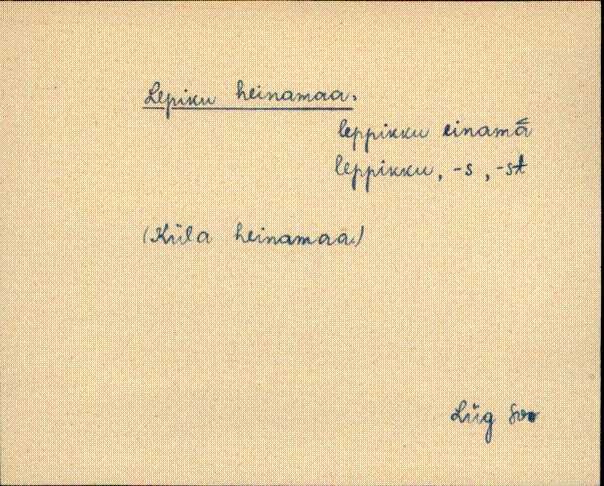 Lepiku heinamaa.
leppikku einamā
leppikku, -s, -st
(Küla heinamaa.)
Lüg Soo